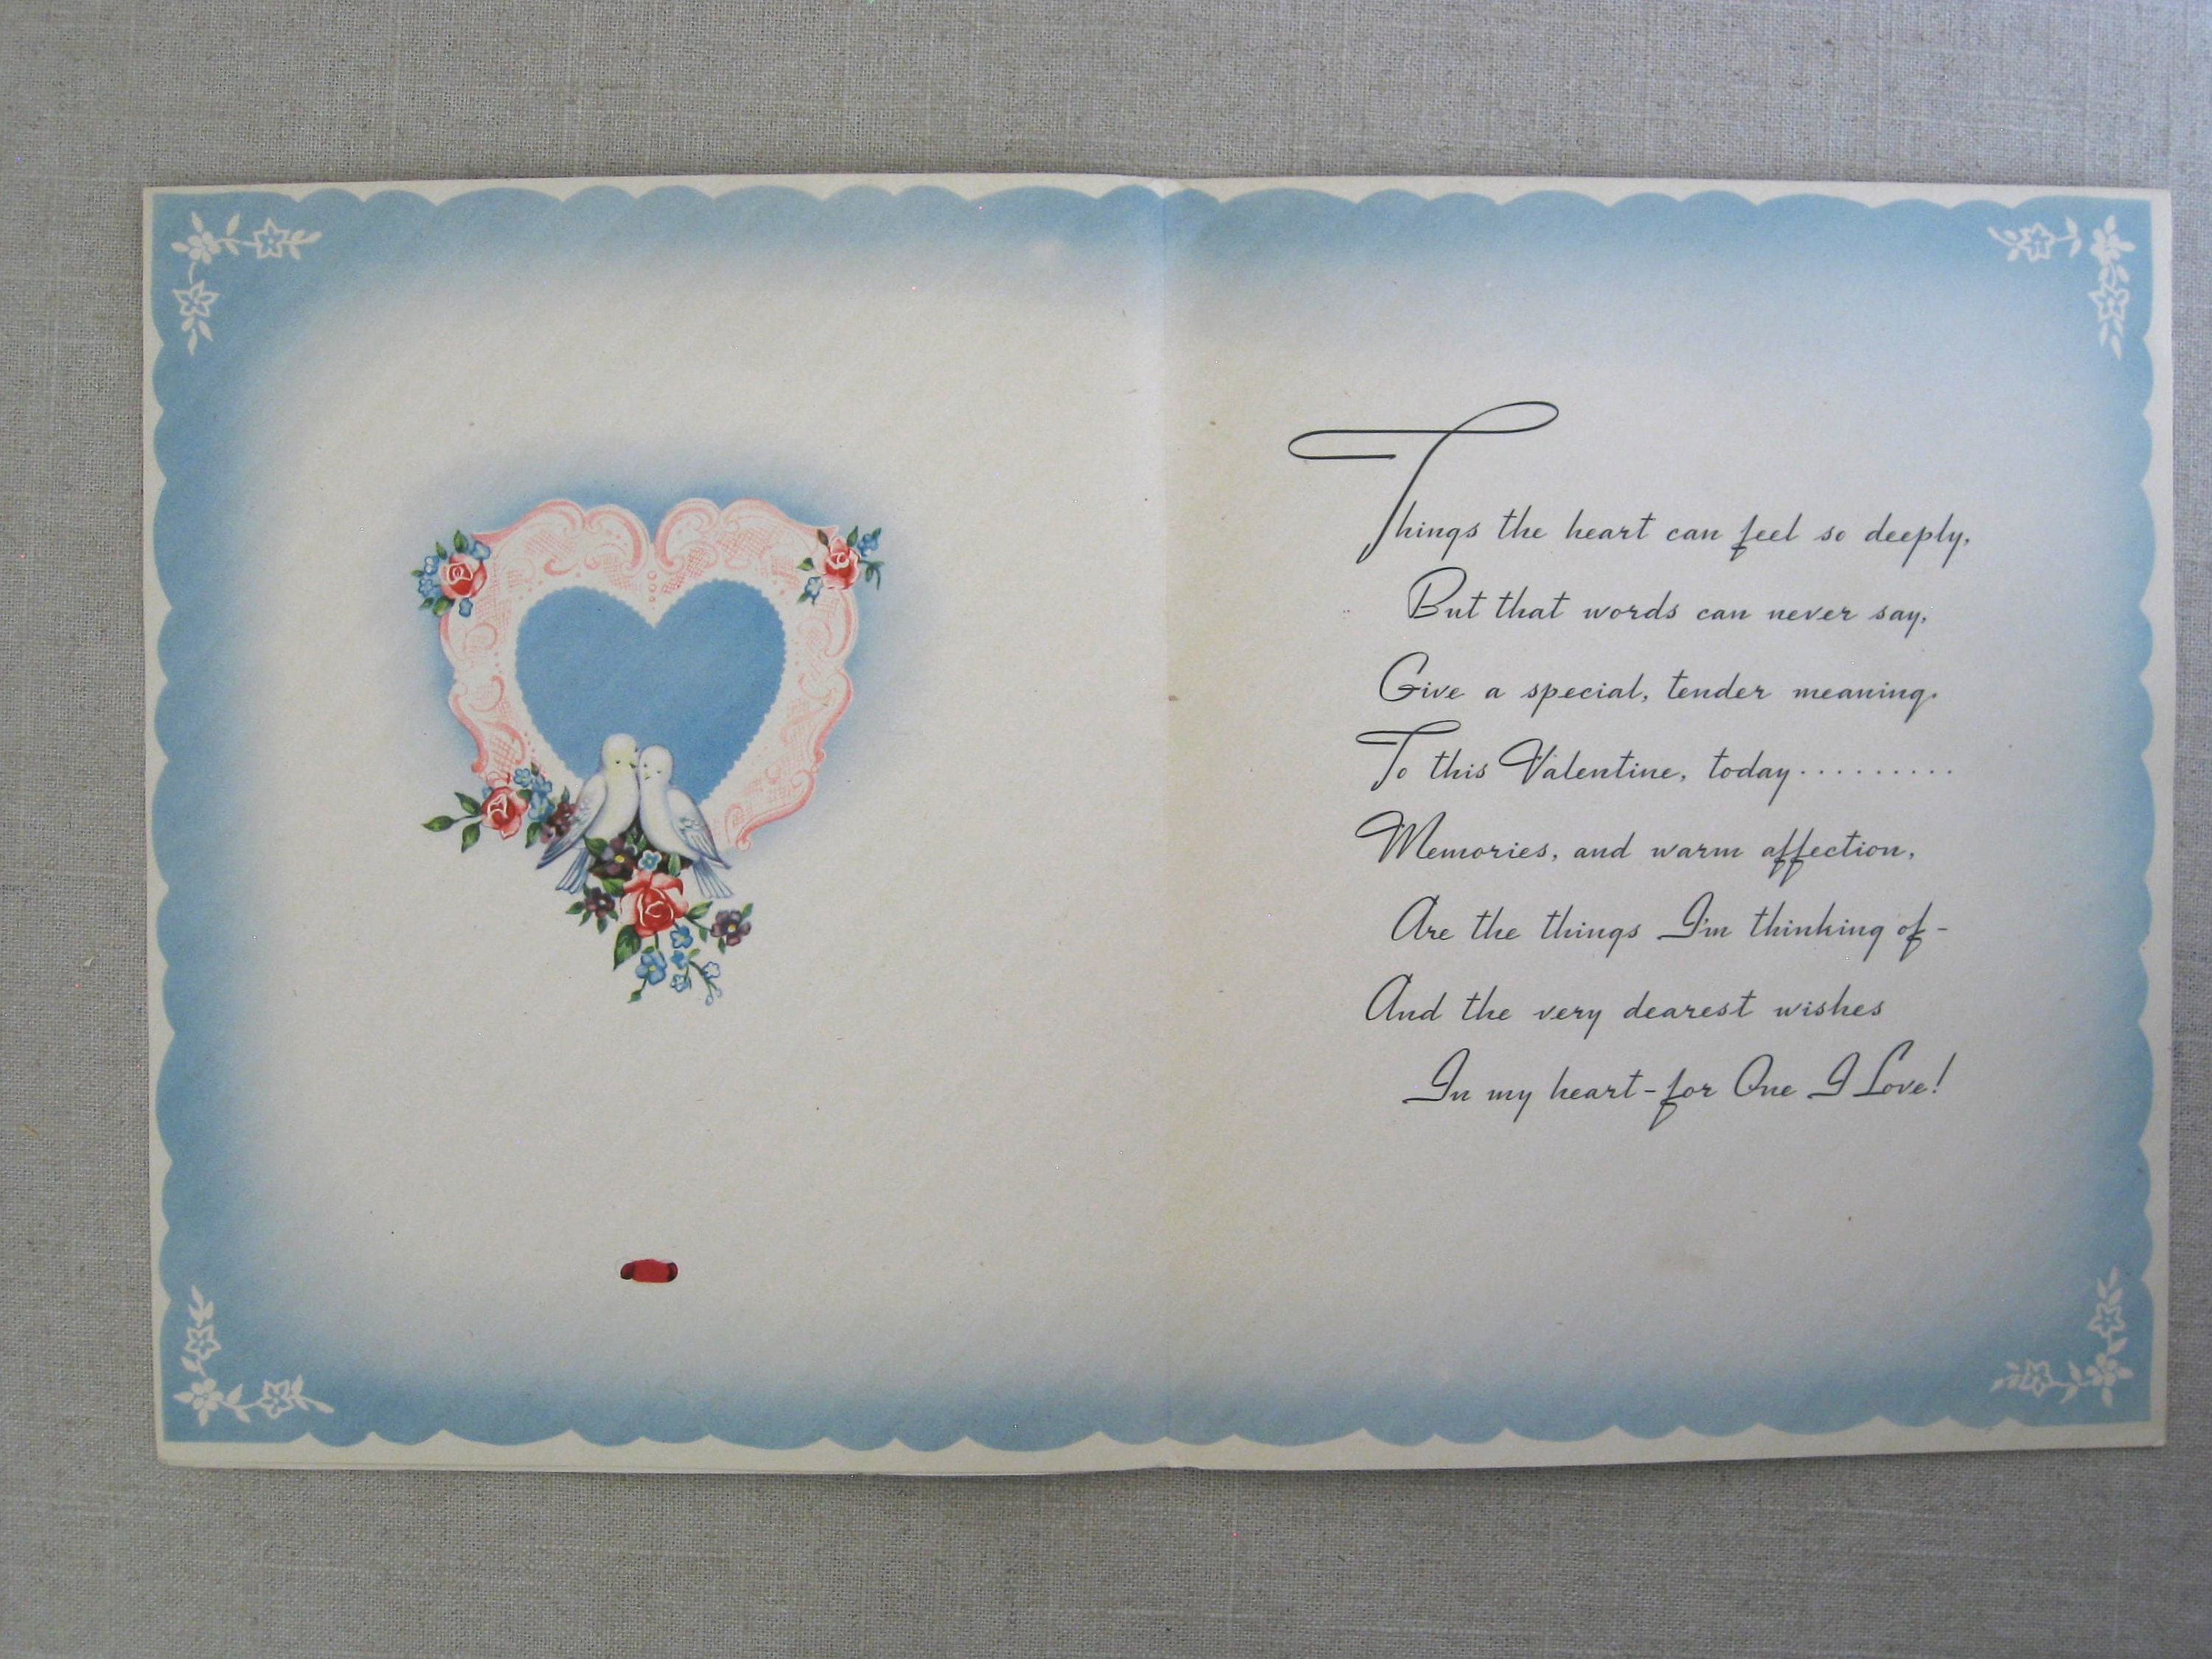 Things the heart can feel so deeply,
But that words can never say,
Give a special, tender meaning
To this Valentine, today.........
Memories, and warm affection,
Are the things I'm thinking of-
And the very dearest wishes
In my heart-for One I Love!